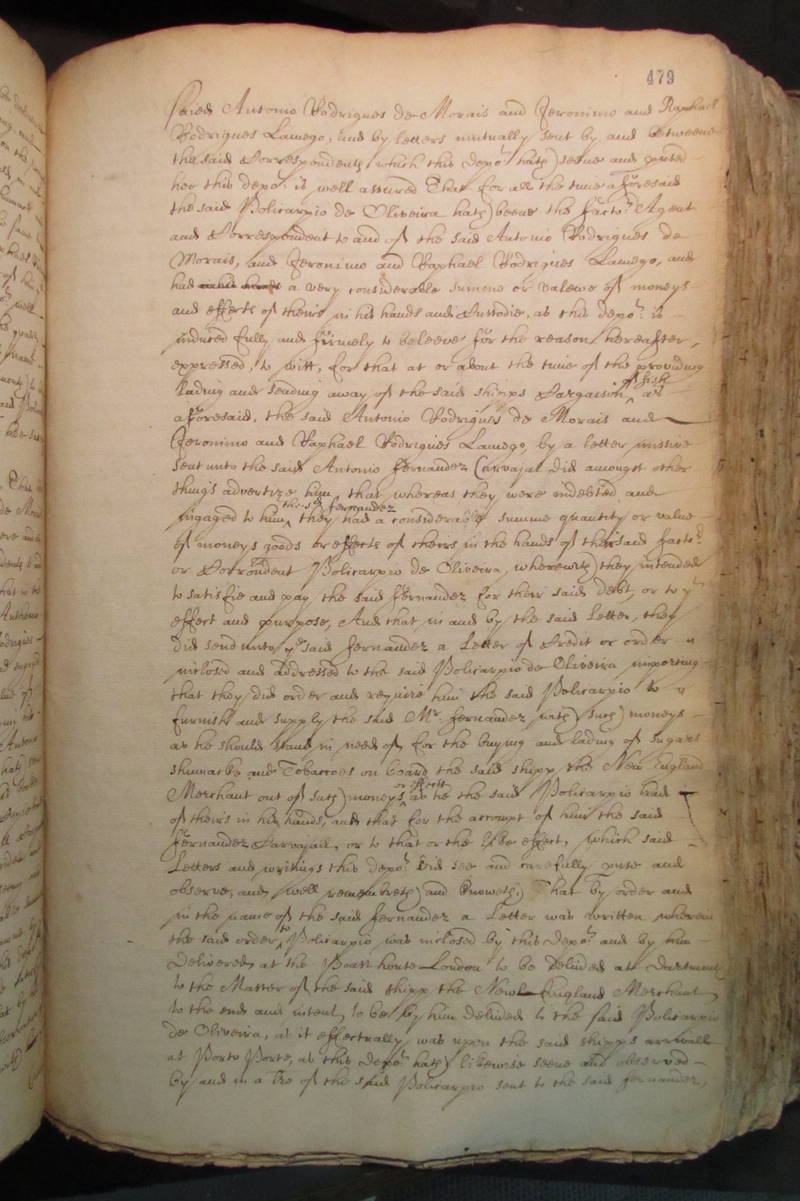 479
said Antonio Rodrigues de Morais and Jeronimo and Raphael
Rodrigues Lamego, and by letters mutually sent by and betweene
the said Correspondents which this depot hath seene and
hee this depot is well assured That for all the time aforesaid
the said Policarpio de Oliveira hath beene the factor Agent
and Correspondent to and of the said Antonio Rodrigues de
Morais, and Jeronimo and Raphael Rodrigues Lamego, and
had a very considerable summe or valewe of moneys
and effects of theirs in his hands and Custodie, as this depot is
induced fully and firmely to beleeve for the reason hereafter
expressed, to witt, for that at or about the time of the providing
lading and sending away of the said shipps Cargaison of fish as
aforesaid, the said Antonio Rodrigues de Morais and
Jeronimo and Raphael Rodrigues Lamego, by a letter missive
sent unto the said Antonio Fernandez Carvajal did amongst other
things advertize him, that whereas they were indebted and
ingaged to him the sd Fernandez they had a considerable summe quantity or value
of moneys goods or effects of theirs in the hands of their said factor
or Correspondent Policarpio de Oliveira, wherewith they intended
to satisfie and pay the said Fernandez for their said debt, or to yt
effect and purpose, And that in and by the said Letter, they
did send unto ye said Fernandez a Letter of Credit or order
inclosed and addressed to the said Policarpio de Oliveira importing
that they did order and require him the said Policarpio to
furnish and supply the said Mr Fernandez with such moneys
as he should stand in need of, for the buying and lading of sugars
shumacke and Tobaccoes on board the said shipp the New England
Merchant out of such moneys or effects as he the said Policarpio had
of theirs in his hands, and that for the accompt of him the said
Fernandez Carvajall, or to that or the like effect, which said
Letters and writings this depot did see and carefully and
observe, and well remembreth and knoweth, That by order and
in the name of the said Fernandez a Letter was written wherein
the said order to Policarpio was inclosed by this Depot and by him
delivered at the Post house London to be delivered at Dartmouth
to the Master of the said shipp the New England Merchant,
to the end and intent to be by him delivered to the said Policarpio
de Oliveira, as it effectually was upon the said shipps arrivall
at Porto Porte, as this Depot hath likewise seene and observed
by and in a Lre of the said Policarpio sent to the said Fernandez,